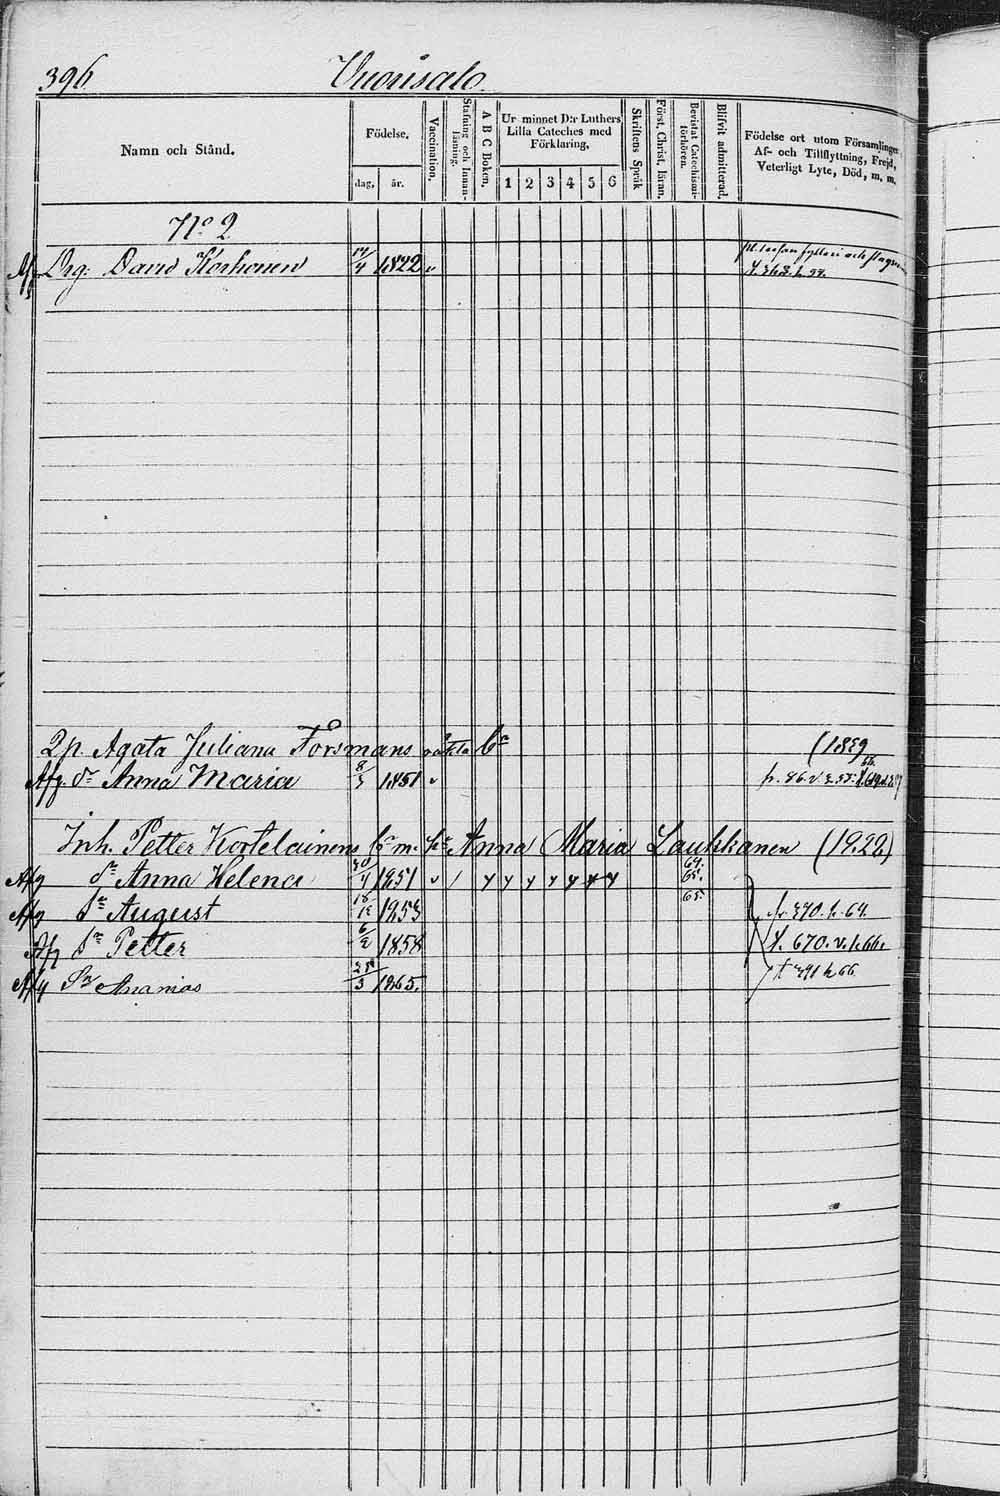 396. Vuorisalo
Namn och Stånd.
Födelse.
dag, år.
Vaccination.
Stafning och Innanläsning.
A B C Boken.
Ur minnet D:r Luthers Lilla Cateches med Förklaring.
1 2 3 4 5 6
Skriftens Språk
Först. Christ. läran.
Bevistat Catechismiförhören.
Blifvit admitterad.
Födelse ort utom Församlingen
Af- och Tillflyttning, Frejd,
Veterligt Lyte, Död, m. m.
No 2
Drg. David Korhonen 4 1822 v och
Agata Juliana Forsmans (1859
Afg. dr Anna Maria 8/3 1851 v
Inh. Petter Kortelainens Anna Maria Laukkanen (1822)
Afg dr Anna Helena 4 1851 v 64. 65.
Afg Sn August 1853 65. fr 370. h. 64.
Afg Sn Petter 6/2 1858 f. 670. v. h. 66.
Afg Sn Ananias 25/3 1865. f 391 h 66